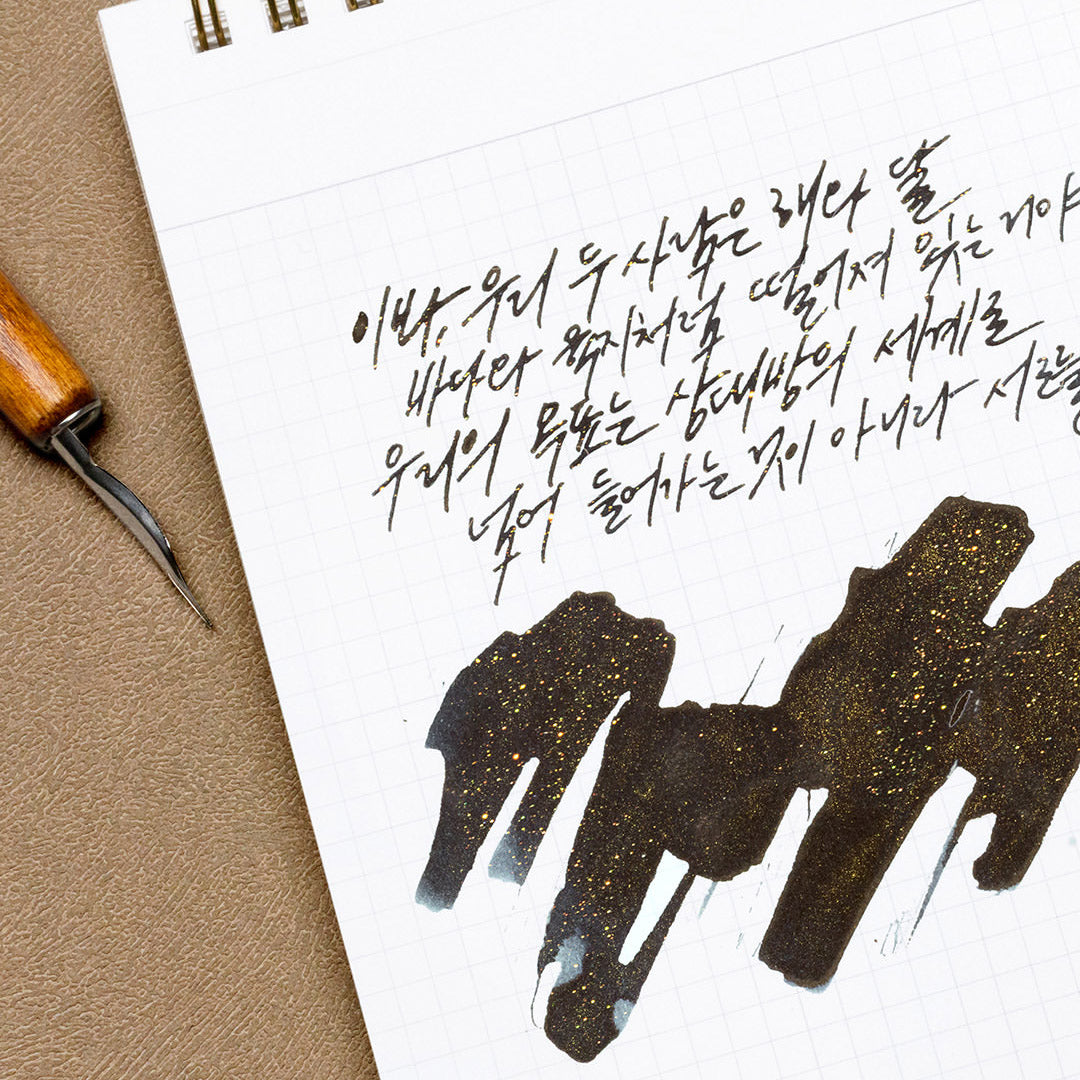 이봐, 우리 두 사람은 해와 달
바다와 육지처럼 떨어져 있는 거야
우리의 목표는 상대방의 세계로
넘어 들어가는 것이 아니라 서로를